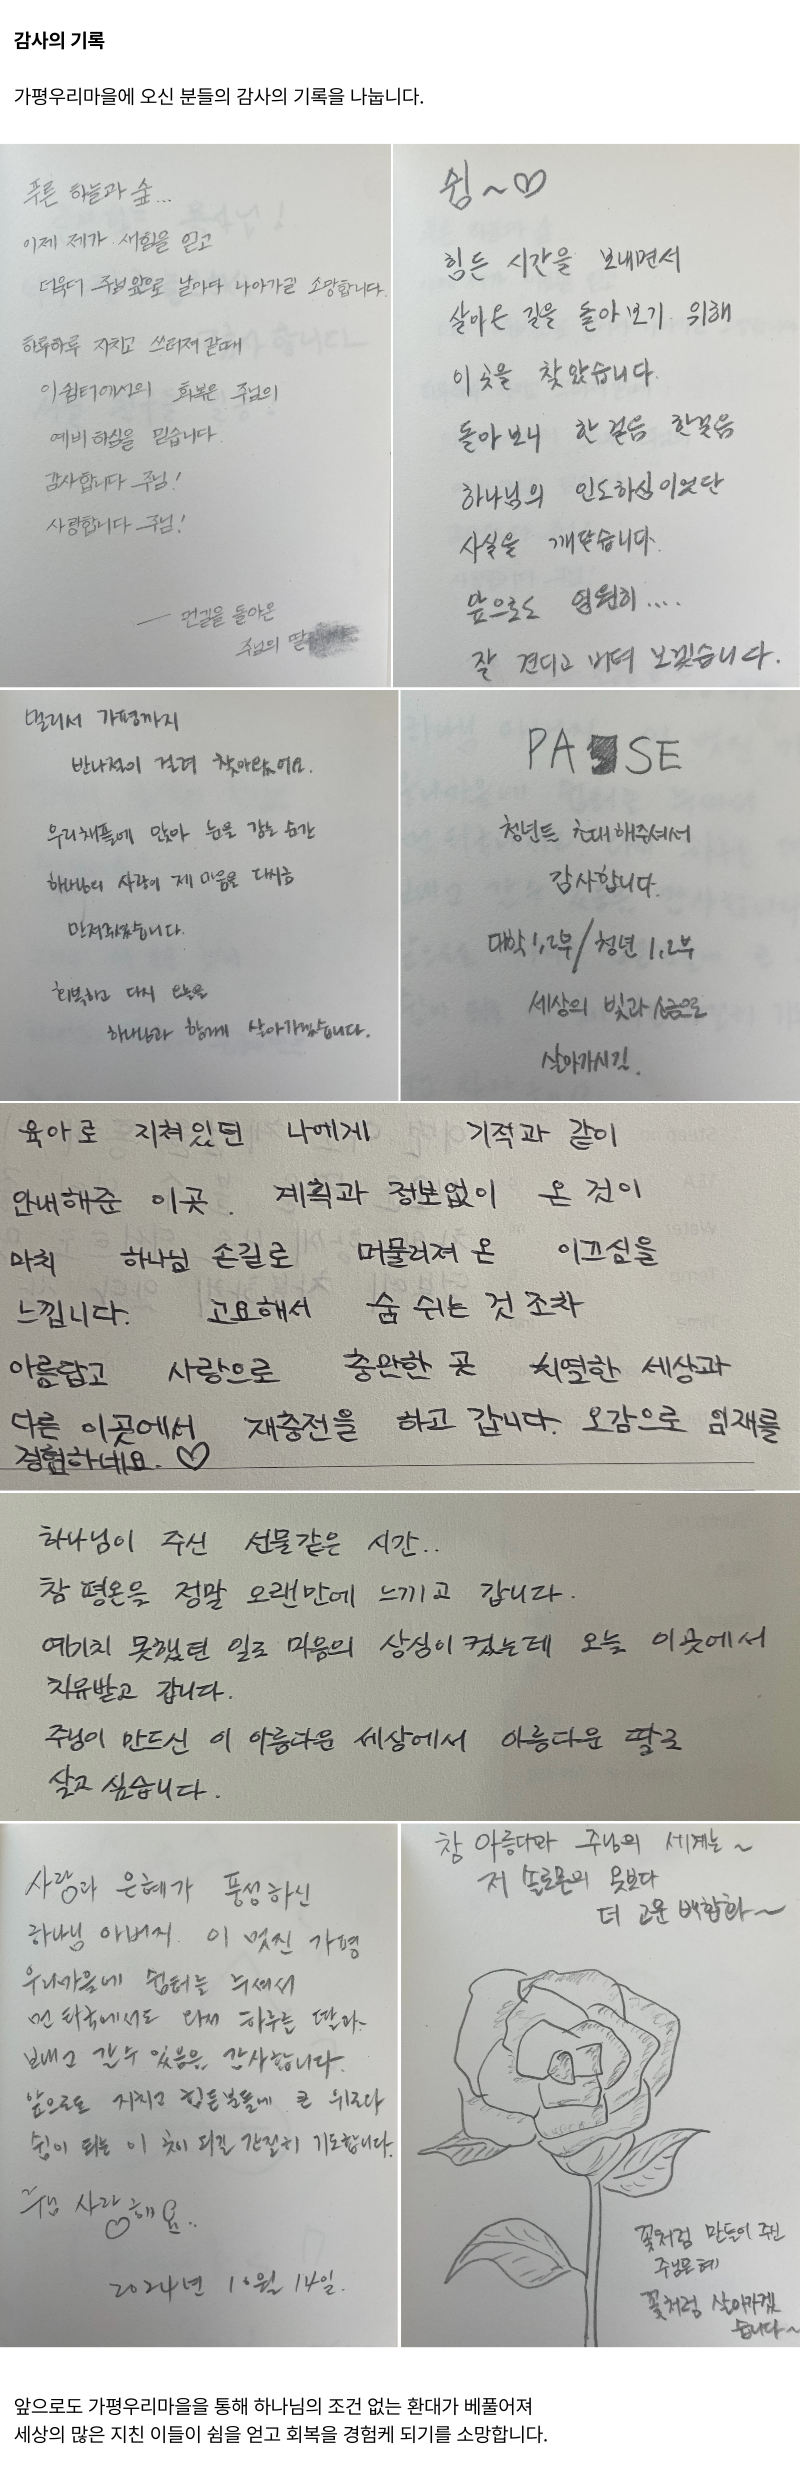 감사의 기록
가평우리마을에 오신 분들의 감사의 기록을 나눕니다.
푸른 하늘과 숲...
이제 제가 새힘을 얻고
더욱더 주님앞으로 날마다 나아가길 소망합니다.
하루하루 지치고 쓰러져갈때
이쉼터에서의 회복은 주님의
예비하심을 믿습니다
감사합니다 주님!
사랑합니다 주님!
— 먼길을 돌아온
주님의 딸
쉼~♡
힘든 시간을 보내면서
살아온 길을 돌아보기 위해
이곳을 찾았습니다.
돌아보니 한걸음 한걸음
하나님의 인도하심이었단
사실을 깨닫습니다.
앞으로도 영원히....
잘 견디고 버텨 보겠습니다.
멀리서 가평까지
반나절이 걸려 찾아왔어요.
우리채플에 앉아 눈을 감는 순간
하나님의 사랑이 제 마음을 다시금
만져주셨습니다.
회복하고 다시 오늘을
하나님과 함께 살아가겠습니다.
PA SE
청년들 초대해주셔서
감사합니다.
대학1,2부/청년1,2부
세상의 빛과 소금으로
살아가시길.
육아로 지쳐있던 나에게 기적과 같이
안내해준 이곳. 계획과 정보없이 온 것이
마치 하나님 손길로 떠물려져 온 이끄심을
느낍니다. 고요해서 숨 쉬는 것 조차
아름답고 사랑으로 충만한 곳 치열한 세상과
다른 이곳에서 재충전을 하고 갑니다. 오감으로 임재를
경험하네요. ♡
하나님이 주신 선물같은 시간..
참 평온을 정말 오랜만에 느끼고 갑니다.
예기치 못했던 일로 마음의 상심이 컸는데 오늘 이곳에서
치유받고 갑니다.
주님이 만드신 이 아름다운 세상에서 아름다운 딸로
살고 싶습니다.
사랑과 은혜가 풍성하신
하나님 아버지. 이 멋진 가평
우리마을에 쉼터를 두셔서
먼 타국에서도 와서 하루를 딸과
보내고 갈수 있음을 감사합니다.
앞으로도 지치고 힘든분들에 큰 위로다
쉼이 되는 이 곳이 되길 간절히 기도합니다.
주님 사랑해요..
2024년 10월 14일.
참 아름다와 주님의 세계는~
저 솔로몬의 옷보다
더 고운 백합화~
꽃처럼 만들어 주신
주님은혜
꽃처럼 살아가겠
습니다~
앞으로도 가평우리마을을 통해 하나님의 조건 없는 환대가 베풀어져
세상의 많은 지친 이들이 쉼을 얻고 회복을 경험케 되기를 소망합니다.